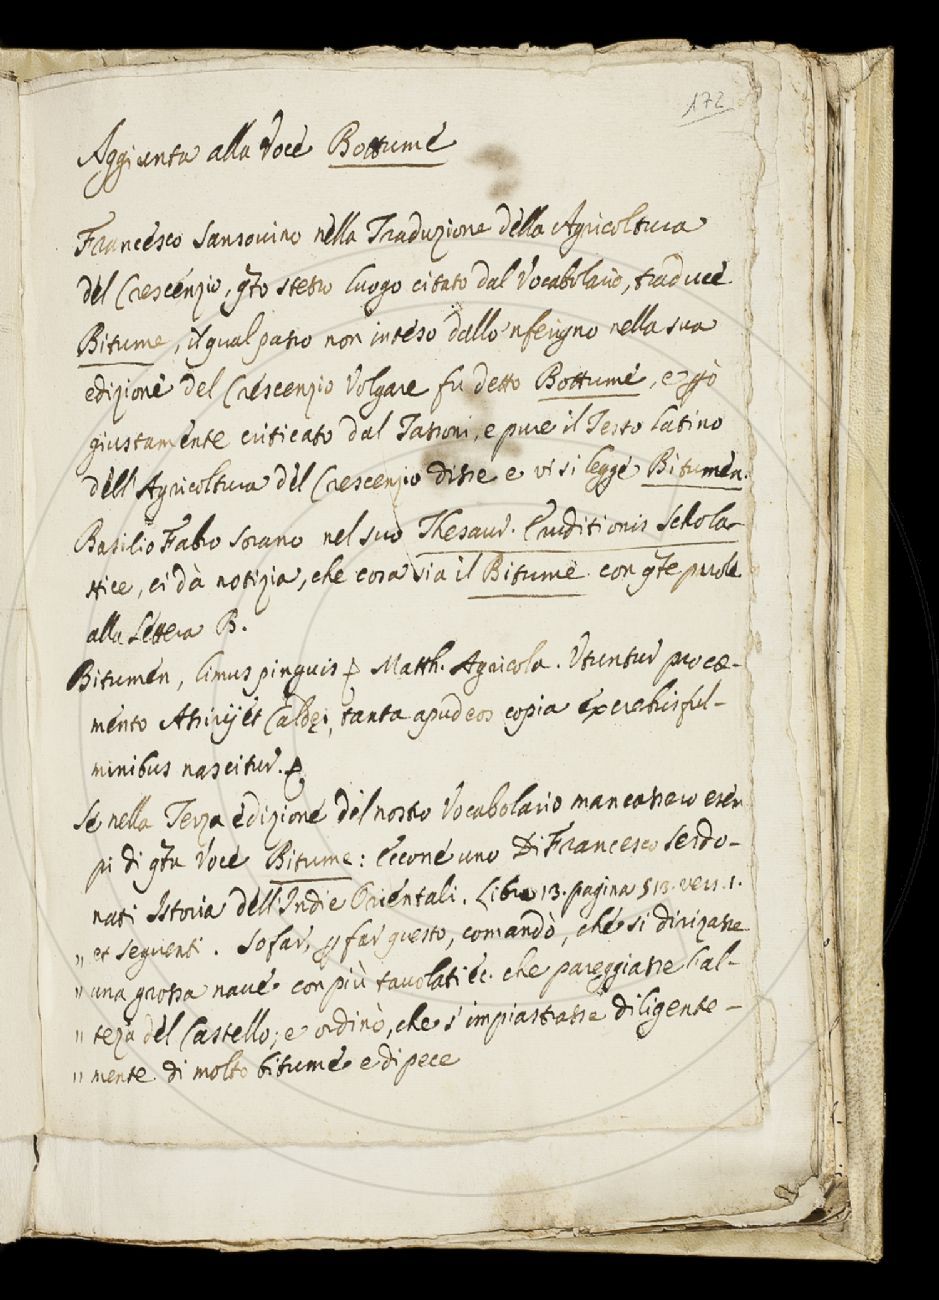 172
Aggiunta alla Voce Bottume
Francesco Sansovino nella Traduzione della Agricoltura
del Crescenzio, qto stesso luogo citato dal Vocabolario, traduce
Bitume, il qual passo non inteso dallo nferigno nella sua
edizione del Crescenzio Volgare fu detto Bottume, e
giustamente criticato dal Tassoni, e pure il Testo Latino
dell'Agricoltura del Crescenzio disse e vi si legge Bitumen.
Basilio Fabro Sorano nel suo Thesaur. Eruditionis Schola-
stice, ci dà notizia, che cosa sia il Bitume con qte parole
alla Lettera B.
Bitumen, limus pinguis Matth. Agricola. Utuntur pro cæ-
mento Assirij et Caldei, tanta apud eos copia ex crebris ful-
minibus nascitur.
Se nella Terza edizione del nostro Vocabolario mancassero esem
pi di qta Voce Bitume: Eccone uno Di Francesco Serdo-
nati Istoria dell'Indie Orientali. Libro 13. pagina 513. vers. 1.
„ et seguenti. Sofar, far questo, comandò, che si dirizasse
„ una grossa nave con più tavolati &c. che pareggiasse l'al-
„ teza del Castello; e ordinò, che s'impiastrasse diligente-
„ mente di molto bitume e di pece